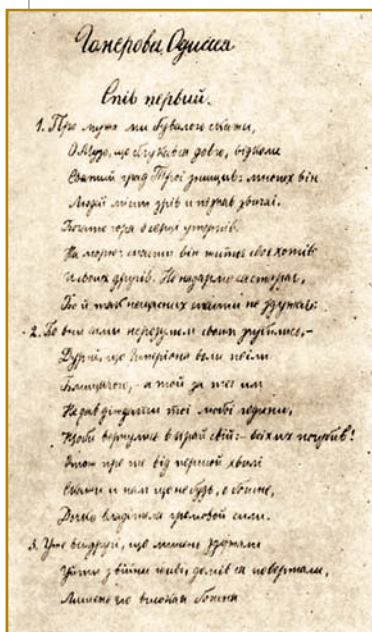 Гомерова Одиссея
Спів первый.
1. Про мужа ми бувалого скажи,
О Музо, що блукався довго, відколи
Святий град Трої знищив: многих він
Людій міст зрів и пізнав звичаї.
Богато горя в серци утерпів
На морю: спасти він житьє своє хотів
И своих другів. Но надармо ся старав,
Бо й так нещасних спасти не здужав:
2. Бо они сами нерозумом своим згубились, –
Дурні, що Гиперіона воли поїли
Блищачого, – а той за те им
Не дав діждати тої любої години,
Щоби вернулись в край свій: – всіх их погубив!
про те від первой хвилі
Скажи и нам що небудь, о богине,
Дочко владітеля громовой сили.
3. Уже всі другі, що лишень здужали
Уйти з війни живі, домів ся повертали,
Лишень го висока богиня